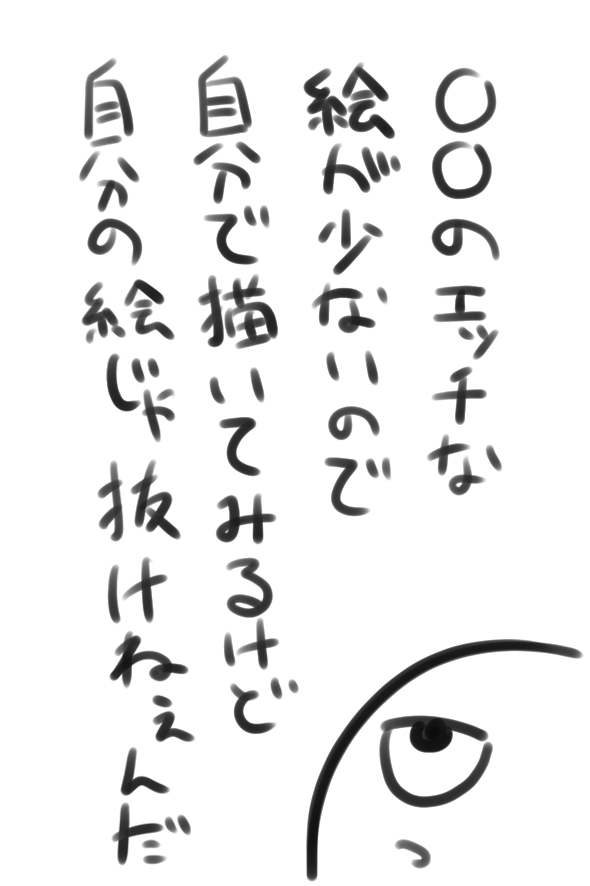 〇〇のエッチな
絵が少ないので
自分で描いてみるけど
自分の絵じゃ抜けねぇんだ